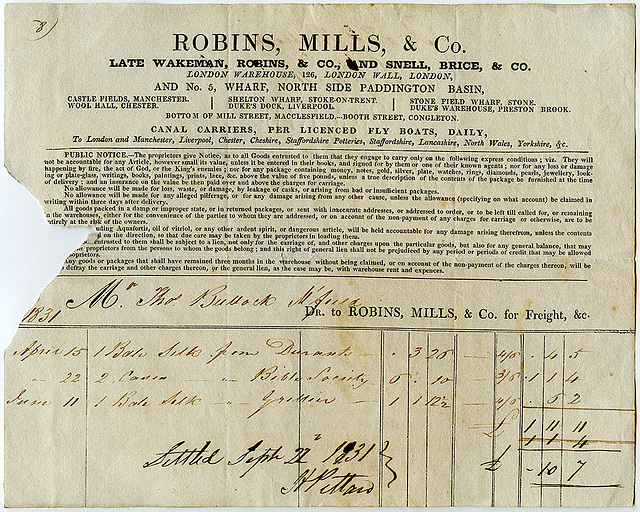 8)
ROBINS, MILLS, & Co.
LATE WAKEMAN, ROBINS, & CO., AND SNELL, BRICE, & CO.
LONDON WAREHOUSE, 126, LONDON WALL, LONDON,
AND No. 5, WHARF, NORTH SIDE PADDINGTON BASIN,
CASTLE FIELDS, MANCHESTER. | SHELTON WHARF, STOKE-ON-TRENT. | STONE FIELD WHARF, STONE.
WOOL HALL, CHESTER. | DUKE'S DOCK, LIVERPOOL. | DUKE'S WAREHOUSE, PRESTON BROOK.
BOTTOM OF MILL STREET, MACCLESFIELD.—BOOTH STREET, CONGLETON.
CANAL CARRIERS, PER LICENCED FLY BOATS, DAILY,
To London and Manchester, Liverpool, Chester, Cheshire, Staffordshire Potteries, Staffordshire, Lancashire, North Wales, Yorkshire, &c.
PUBLIC NOTICE.—The proprietors give Notice, as to all Goods entrusted to them that they engage to carry only on the following express conditions; viz. They will
not be accountable for any Article, however small its value, unless it be entered in their books, and signed for by them or one of their known agents; nor for any loss or damage
happening by fire, the act of God, or the King's enemies; nor for any package containing money, notes, gold, silver, plate, watches, rings, diamonds, pearls, jewellery, look-
ing or plate-glass, writings, books, paintings, prints, lace, &c. above the value of five pounds, unless a true description of the contents of the package be furnished at the time
of delivery; an insurance on the value be then paid over and above the charges for carriage.
No allowance will be made for loss, waste, or damage, by leakage of casks, or arising from bad or insufficient packages.
No allowance will be made for any alleged pilferage, or for any damage arising from any other cause, unless the allowance (specifying on what account) be claimed in
writing within three days after delivery.
All goods packed in a damp or improper state, or in returned packages, or sent with inaccurate addresses, or addressed to order, or to be left till called for, or remaining
in the warehouses, either for the convenience of the parties to whom they are addressed, or on account of the non-payment of any charges for carriage or otherwise, are to be
tirely at the risk of the owners.
nding Aquafortis, oil of vitriol, or any other ardent spirit, or dangerous article, will be held accountable for any damage arising therefrom, unless the contents
on the direction, so that due care may be taken by the proprietors in loading them.
entrusted to them shall be subject to a lien, not only for the carriage of, and other charges upon the particular goods, but also for any general balance, that may
proprietors from the persons to whom the goods belong; and this right of general lien shall not be prejudiced by any period or periods of credit that may be allowed
oprietors.
ny goods or packages that shall have remained three months in the warehouse without being claimed, or on account of the non-payment of the charges thereon, will be
defray the carriage and other charges thereon, or the general lien, as the case may be, with warehouse rent and expences.
Mr. Thos Bullock
1831 Dr. to ROBINS, MILLS, & Co. for Freight, &c.
April 15 1 Bale Silk from Durant . 3 26 4/6 . 4 5
" 22 2 Cases " Bible Society 6 . 10 3/6 1 1 4
June 11 1 Bale Silk " 1 1 12½ 4/6 . 6 2
1 11 11
1 1 4
Settled Septr 22d 1831 - 10 7